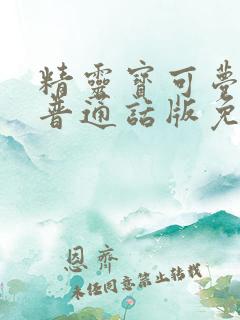 精靈寶可夢
普通話版免
恩齊
未经同意禁止转载